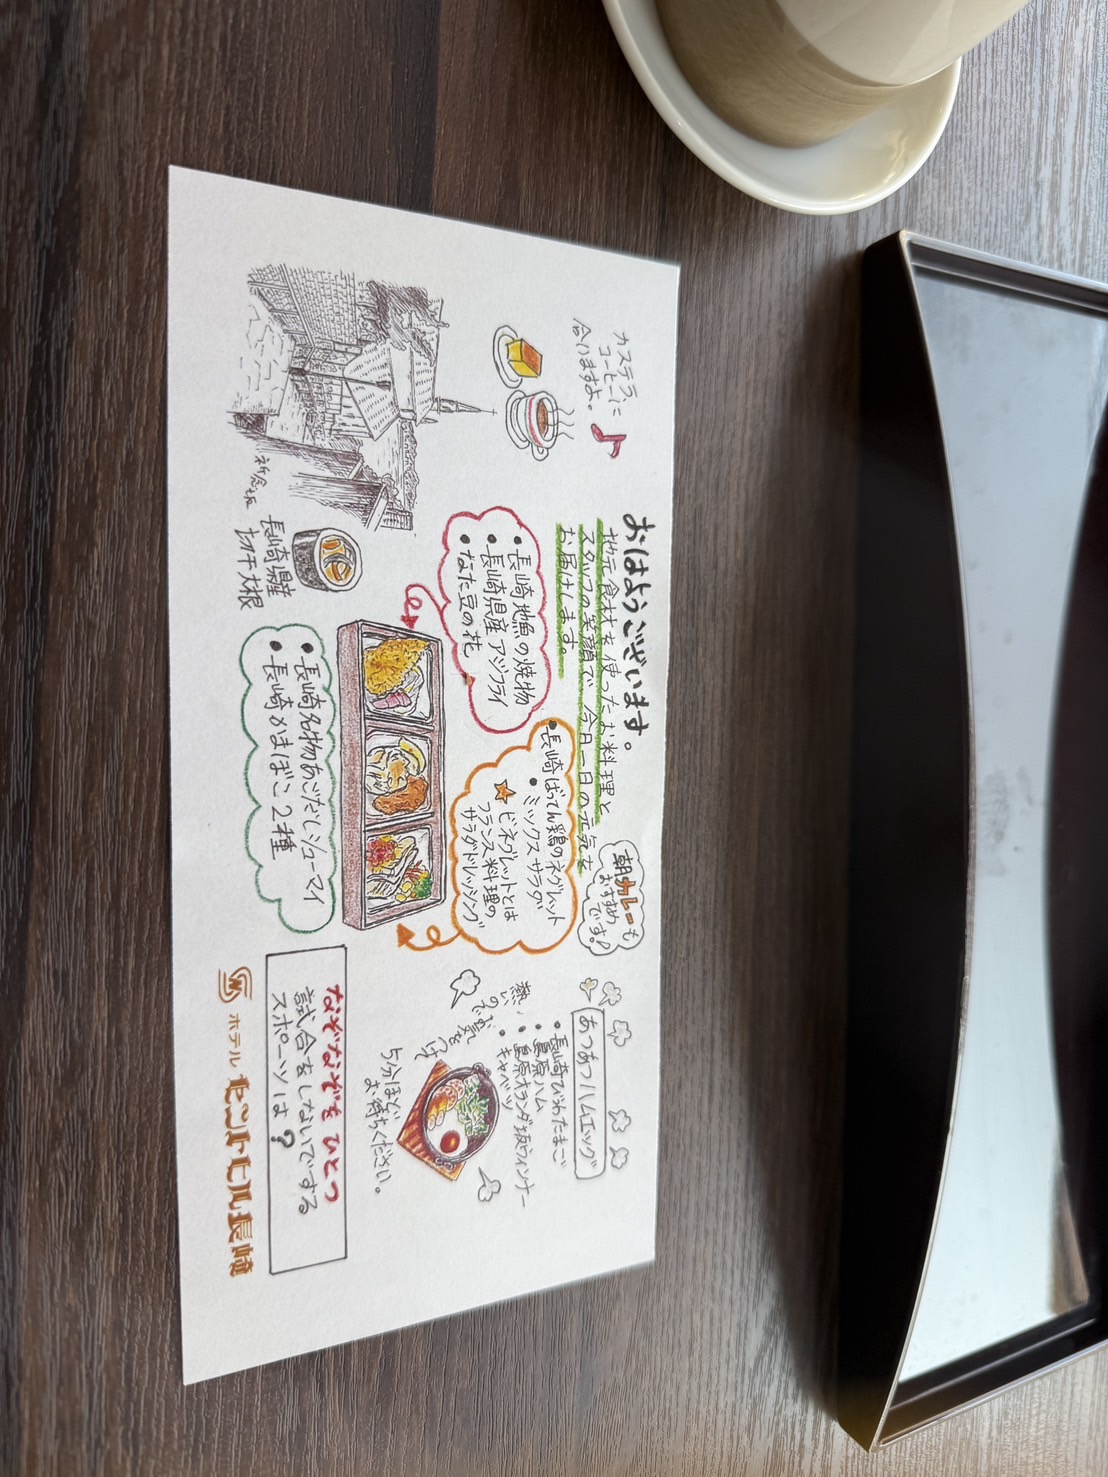 カステラ
コーヒーに
合いますよ。
おはようございます。
地元食材を使ったお料理と
スタッフの笑顔で、今日一日の元気を
お届けします。
朝カレーも
おすすめ
です!
・長崎地魚の焼物
・長崎県産アジフライ
・なた豆の花
・長崎ばってん鶏のネグレット
・ミックスサラダ
☆ビネグレットとは
フランス料理の
サラダドレッシング
あつあつハムエッグ
・長崎びわたまご
・島原ハム
・島原オランダ坂ウィンナー
・キャベツ
熱いので
お気をつけ
5分ほど
お待ちください。
祈念坂
長崎県産
切干大根
・長崎名物あごだしシューマイ
・長崎かまぼこ2種
なぞなぞを ひとつ
試合をしないでする
スポーツは?
ホテル セントヒル長崎